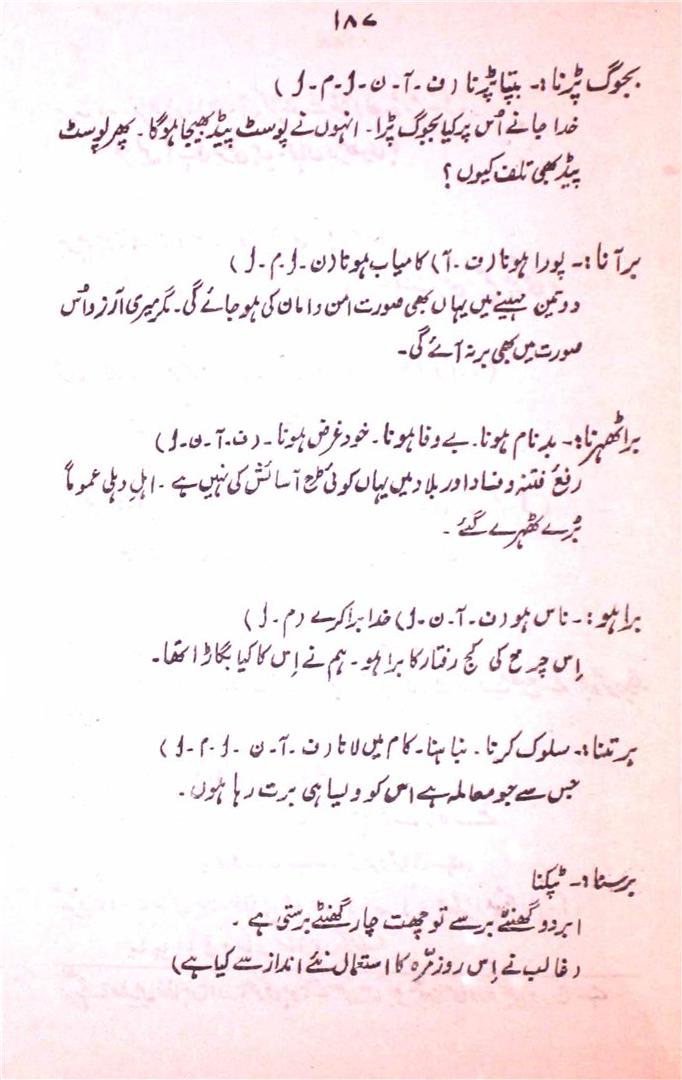 ۱۸۷
بجوگ پڑنا:۔ بپتا پڑنا (ف۔آ۔ن۔ل۔م۔ل)
خدا جانے اُس پر کیا بجوگ پڑا۔ انہوں نے پوسٹ پیڈ بھیجا ہوگا۔ پھر پوسٹ
پیڈ بھی تلف کیوں؟
بر آنا:۔ پورا ہونا (ف۔آ) کامیاب ہونا (ن۔ل۔م۔ل)
دو تین مہینے میں یہاں بھی صورت امن و امان کی ہو جائے گی۔ مگر میری آرزو اُس
صورت میں بھی بر نہ آئے گی۔
برا ٹھہرنا:۔ بدنام ہونا۔ بے وفا ہونا۔ خود غرض ہونا۔ (ف۔آ۔ن۔ل)
رفع فتنہ و فساد اور بلاد میں یہاں کوئی طرح آسائش کی نہیں ہے۔ اہلِ دہلی عموماً
بُرے ٹھہرے گئے۔
برا ہو:۔ ناس ہو (ف۔آ۔ن۔ل) خدا برا کرے (م۔ل)
اِس چرخ کی کج رفتار کا برا ہو۔ ہم نے اِس کا کیا بگاڑا تھا۔
برتنا:۔ سلوک کرنا۔ نباہنا۔ کام میں لانا (ف۔آ۔ن۔ل۔م۔ل)
جس سے جو معاملہ ہے اس کو ویسا ہی برت رہا ہوں۔
برسنا:۔ ٹپکنا
ابر دو گھنٹے برسے تو چھت چار گھنٹے برستی ہے۔
(غالب نے اِس روزمرّہ کا استعمال نئے انداز سے کیا ہے)